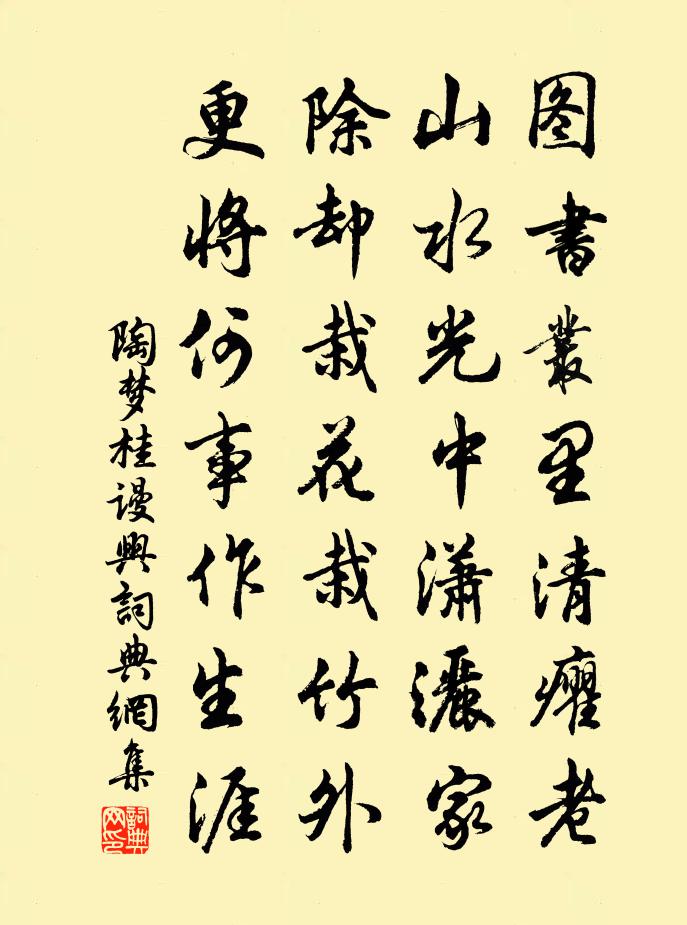 图书叢里清癯老
山水光中潇灑家
除却栽花栽竹外
更将何事作生涯
陶梦桂谩興詞典網集
詞典網印